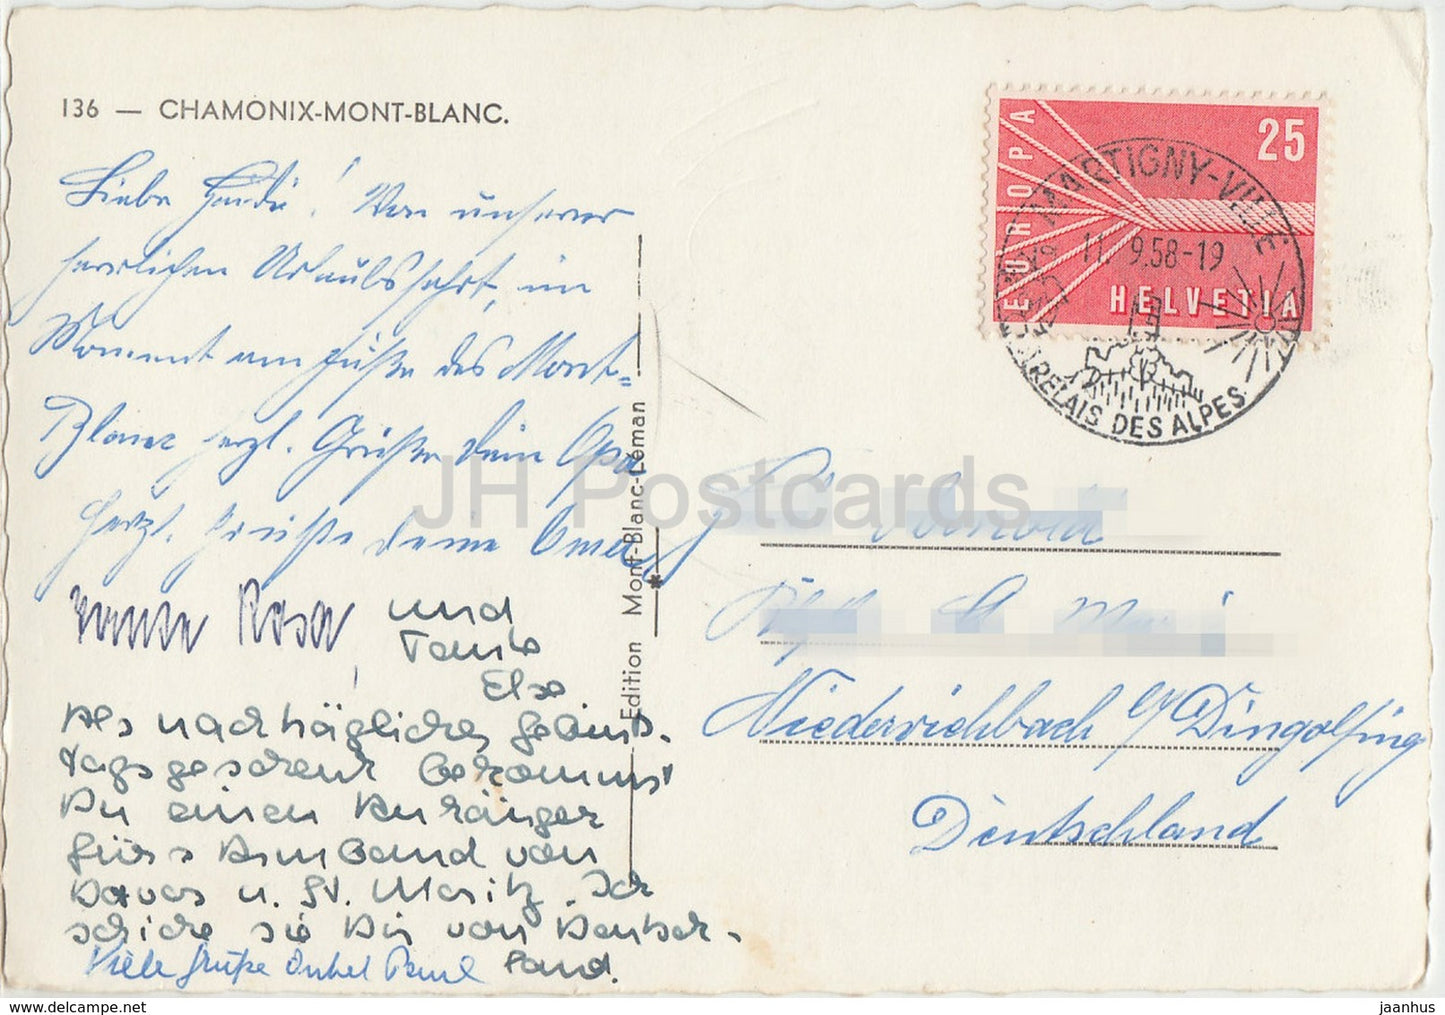 136 — CHAMONIX-MONT-BLANC.
Liebe Heidi! Von unserer
herrlichen Urlaubsfahrt, im
Moment am Füße des Mont-
Blanc herzl. Grüße dein Opa
Herzl. Grüße deine Oma
Tante Rosa, und
Tante
Else
Als nachträgliches Geburts-
tagsgeschenk bekommst
Du einen Anhänger
fürs Armband von
Davos u. St. Moritz. Ich
schicke sie Dir von Deutsch-
land.
Viele Grüße Onkel Paul
Edition Mont-Blanc-Léman
EUROPA
25
HELVETIA
MARTIGNY-VILLE
11. 9.58-19
RELAIS DES ALPES
Niederviehbach b/Dingolfing
Deutschland
JH Postcards
https://www.delcampe.net
jaanhus